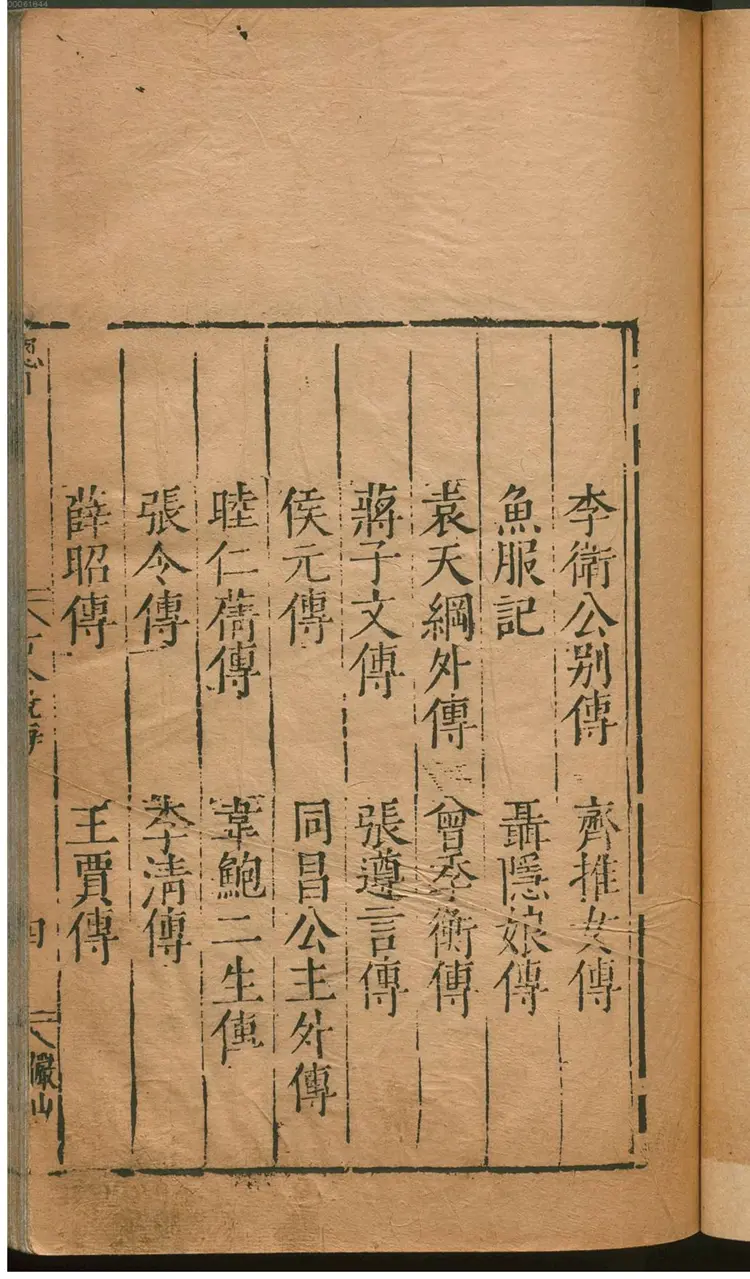 00081644
李衛公別傳 齊推女傳
魚服記 聶隱娘傳
袁天綱外傳 曾季衡傳
蔣子文傳 張遵言傳
侯元傳 同昌公主外傳
睦仁蒨傳 韋鮑二生傳
張令傳 李清傳
薛昭傳 王賈傳
四 儼山